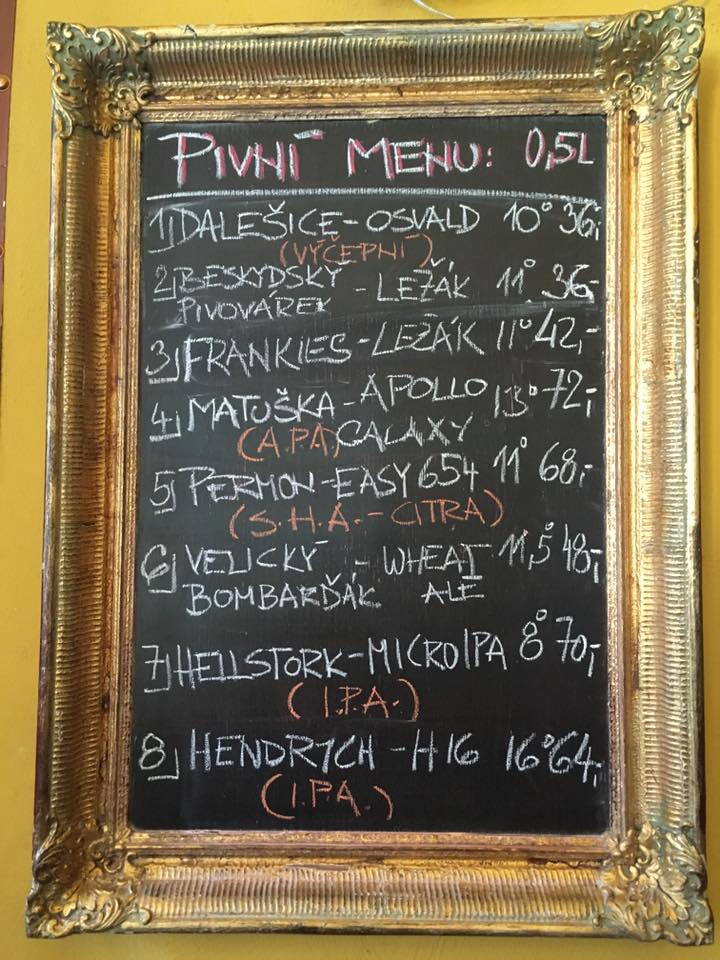 PIVNÍ MENU: 0,5L
1) DALEŠICE - OSVALD 10° 36,-
(VÝČEPNÍ)
2) BESKYDSKÝ - LEŽÁK 11° 36,-
PIVOVÁREK
3) FRANKIES - LEŽÁK 11° 42,-
4) MATUŠKA - APOLLO 13° 72,-
(A.P.A) GALAXY
5) PERMON - EASY 654 11° 68,-
(S.H.A. - CITRA)
6) VELICKÝ - WHEAT 11,5° 48,-
BOMBARĎÁK ALE
7) HELLSTORK - MICROIPA 8° 70,-
(I.P.A.)
8) HENDRYCH - H16 16° 64,-
(I.PA.)